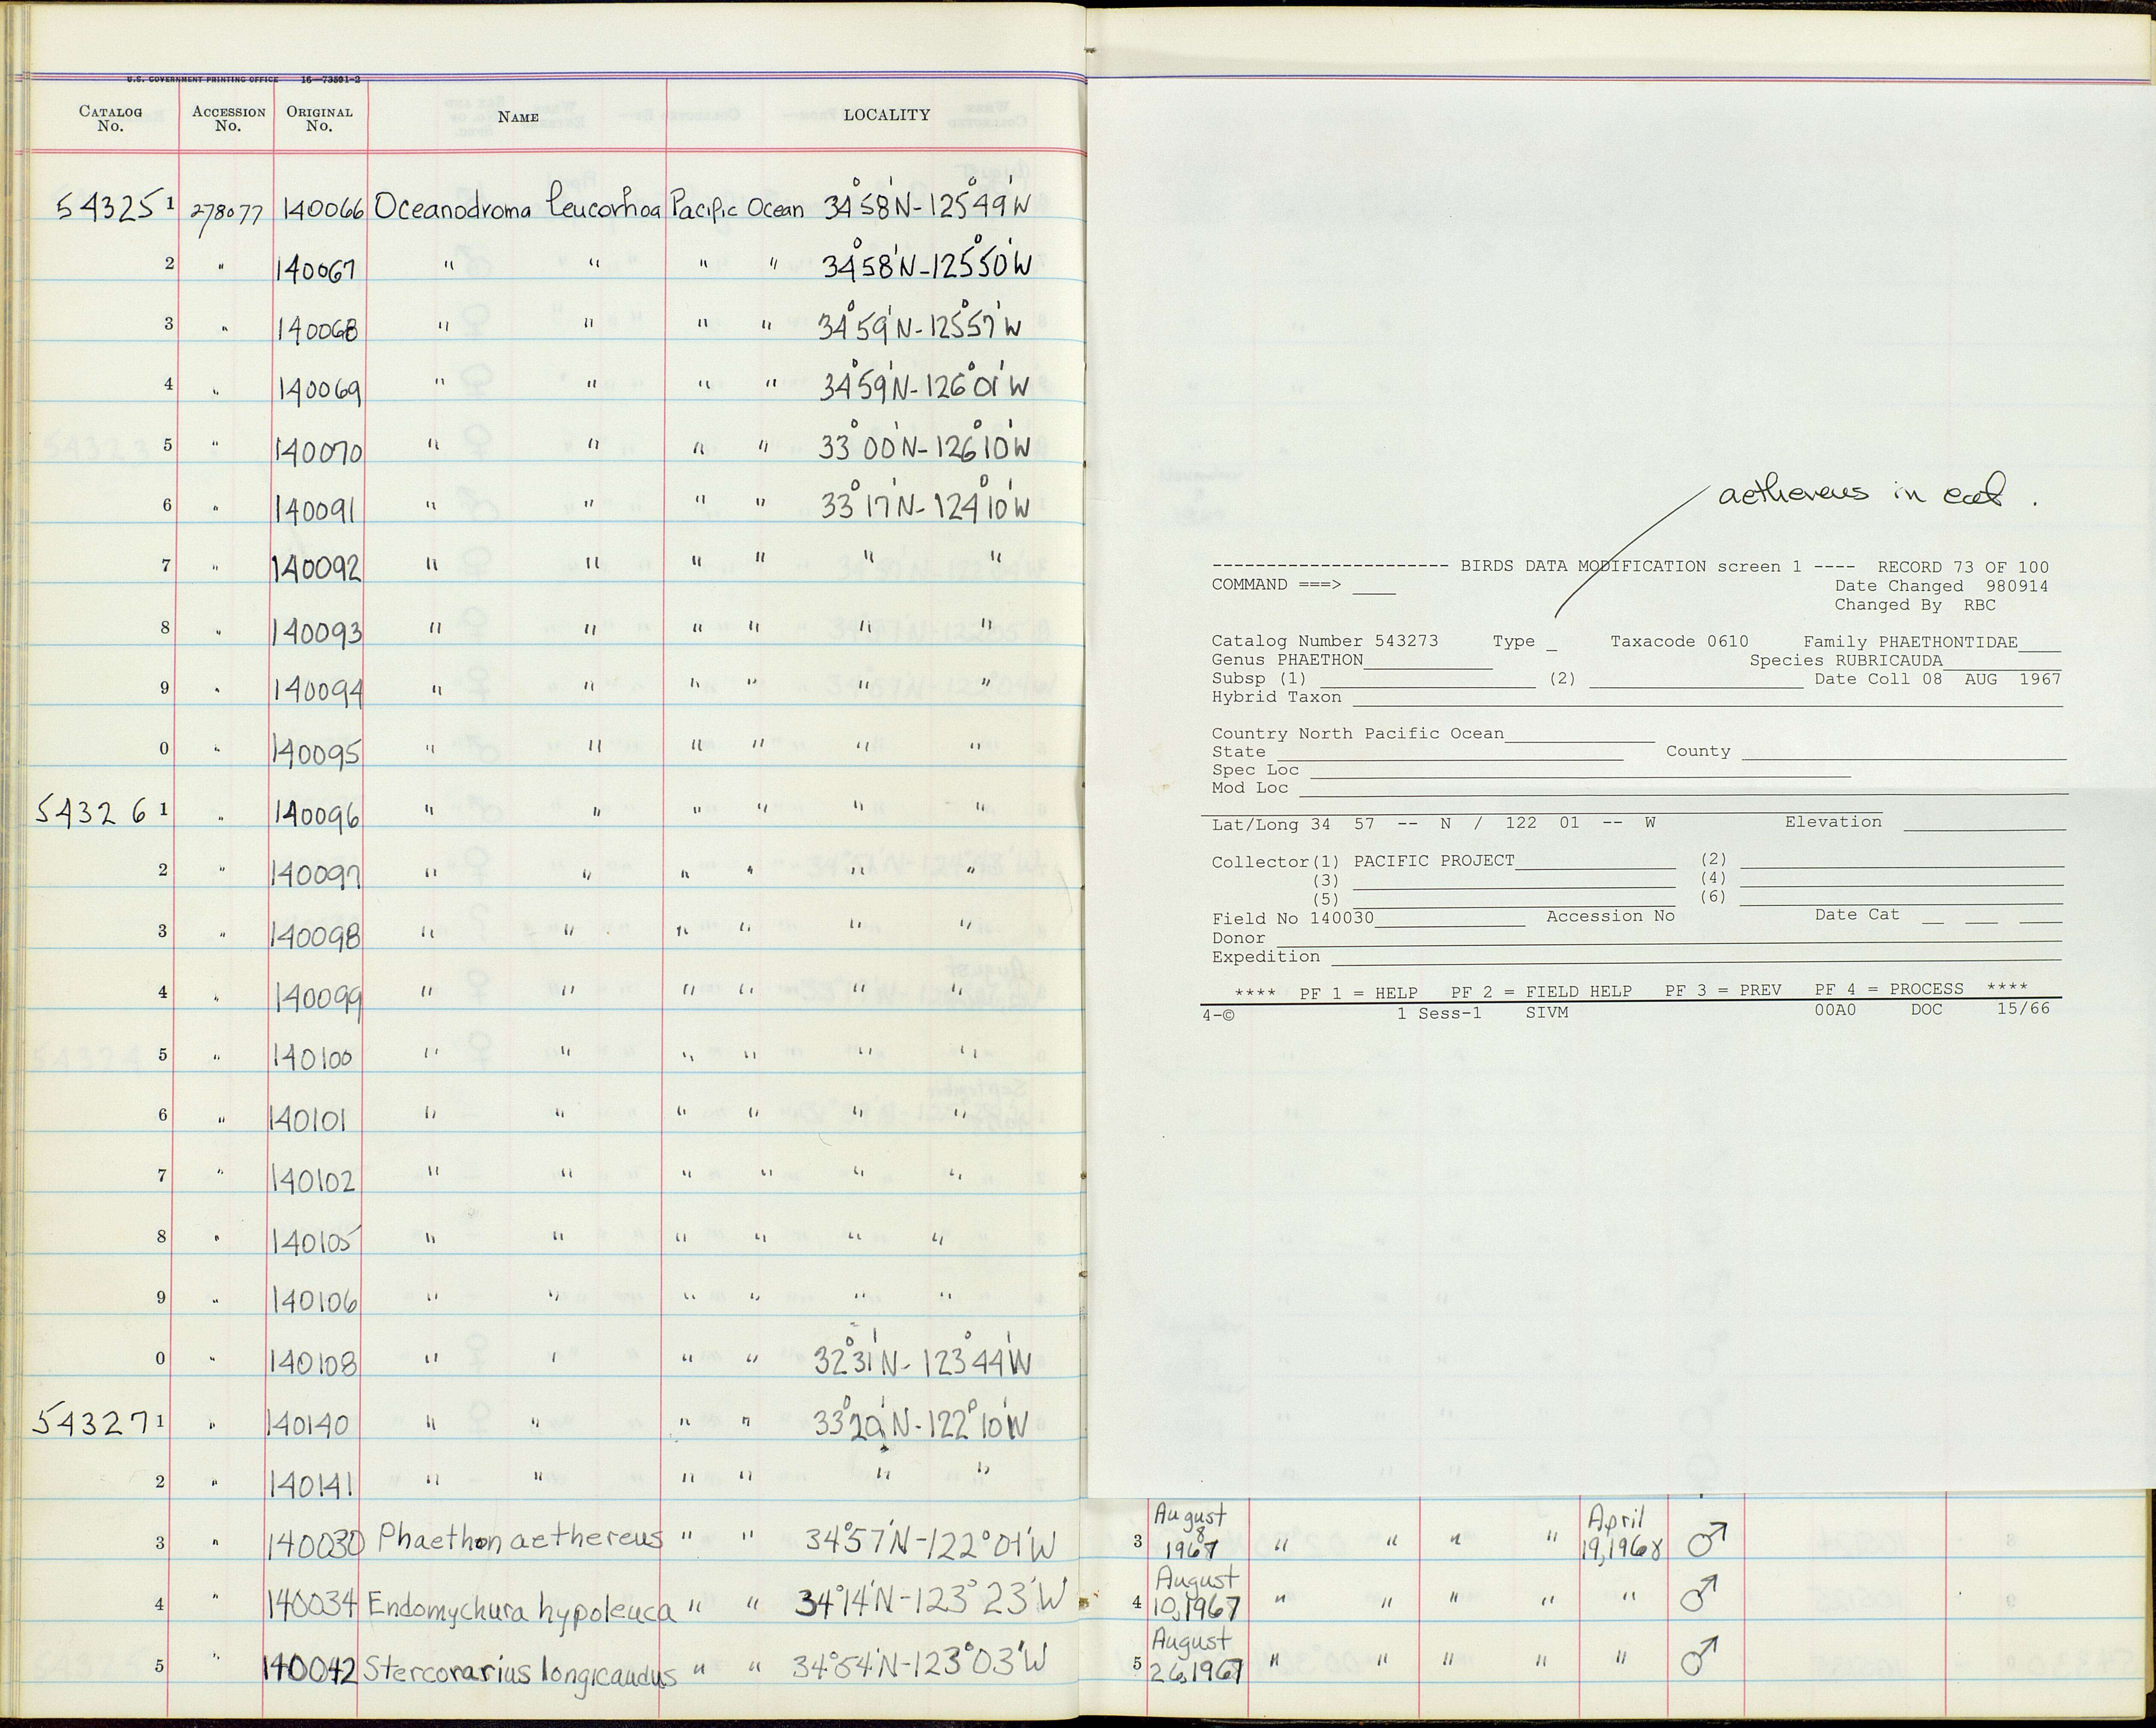 U.S. GOVERNMENT PRINTING OFFICE 16—73591-2
CATALOG No. ACCESSION No. ORIGINAL No. NAME LOCALITY
54325 1 278077 140066 Oceanodroma leucorhoa Pacific Ocean 34°58'N-125°49'W
2 " 140067 " " " " 34°58'N-125°50'W
3 " 140068 " " " " 34°59'N-125°57'W
4 " 140069 " " " " 34°59'N-126°01'W
5 " 140070 " " " " 33°00'N-126°10'W
6 " 140091 " " " " 33°17'N-124°10'W
7 " 140092 " " " " " "
8 " 140093 " " " " " "
9 " 140094 " " " " " "
0 " 140095 " " " " " "
54326 1 " 140096 " " " " " "
2 " 140097 " " " " " "
3 " 140098 " " " " " "
4 " 140099 " " " " " "
5 " 140100 " " " " " "
6 " 140101 " " " " " "
7 " 140102 " " " " " "
8 " 140105 " " " " " "
9 " 140106 " " " " " "
0 " 140108 " " " " 32°31'N-123°44'W
54327 1 " 140140 " " " " 33°20'N-122°10'W
2 " 140141 " " " " " "
3 " 140030 Phaethon aethereus " " 34°57'N-122°01'W
4 " 140034 Endomychura hypoleuca " " 34°14'N-123°23'W
5 " 140042 Stercorarius longicaudus " " 34°54'N-123°03'W
aethereus in cat.
---------------------- BIRDS DATA MODIFICATION screen 1 ---- RECORD 73 OF 100
COMMAND ===> ____ Date Changed 980914
Changed By RBC
Catalog Number 543273 Type _ Taxacode 0610 Family PHAETHONTIDAE____
Genus PHAETHON____________ Species RUBRICAUDA___________
Subsp (1) ____________________ (2) ____________________ Date Coll 08 AUG 1967
Hybrid Taxon ____________________
Country North Pacific Ocean______________
State ____________________ County ____________________
Spec Loc ____________________
Mod Loc ____________________
Lat/Long 34 57 -- N / 122 01 -- W Elevation _______________
Collector(1) PACIFIC PROJECT_______________ (2) ____________________
(3) ____________________ (4) ____________________
(5) ____________________ (6) ____________________
Field No 140030______________ Accession No Date Cat __ ___ ____
Donor ____________________
Expedition ____________________
**** PF 1 = HELP PF 2 = FIELD HELP PF 3 = PREV PF 4 = PROCESS ****
4-© 1 Sess-1 SIVM 00A0 DOC 15/66
3 August 8 1967 " " " " April 19, 1968 ♂
4 August 10, 1967 " " " " " ♂
5 August 26, 1967 " " " " " ♂